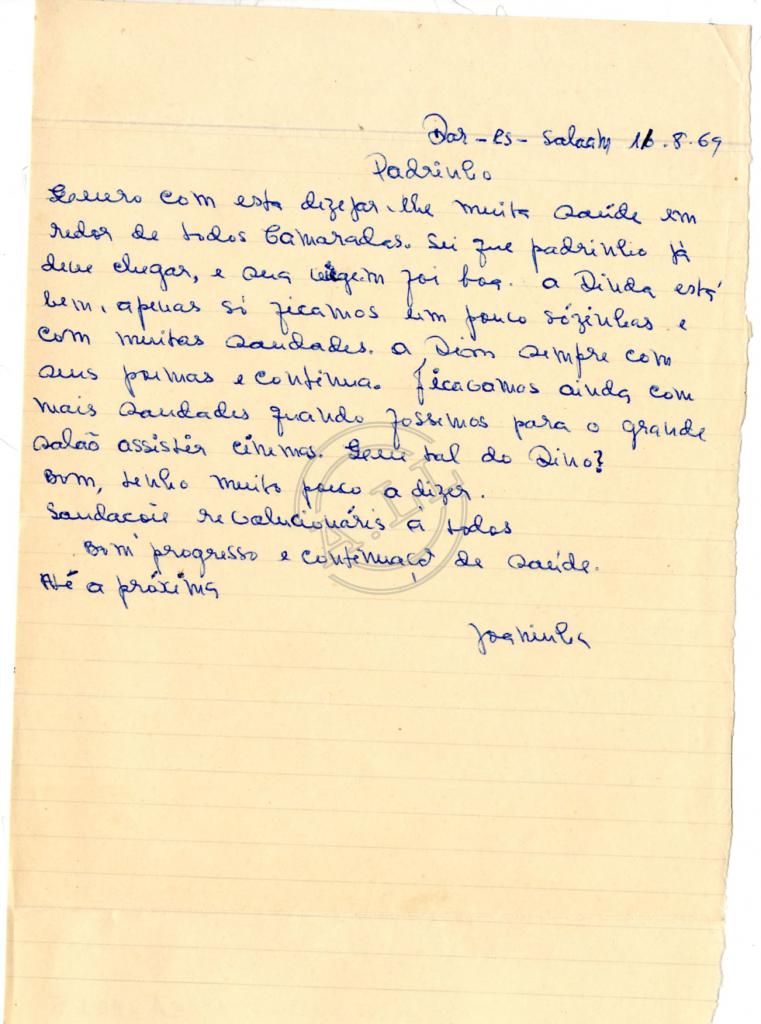 Dar-es-Salaam 16.8.69
Padrinho
com esta dizejar-lhe muita saúde em
redor de todos Camaradas. Sei que padrinho já
deve chegar, e sua viágem foi boa. a Dinda está
bem, apenas só ficamos um pouco sózinhas e
com muitas saudades. a Dion sempre com
seus poemas e continua. ficavamos ainda com
mais saudades quando fossimos para o grande
salão assistir cinemas. tal do Dino?
Bom, tenho muito pouco a dizer.
Saudacoie revolucionáris á todos
Bom progresso e de saúde.
Até a próxima
Joaninha
A.LL